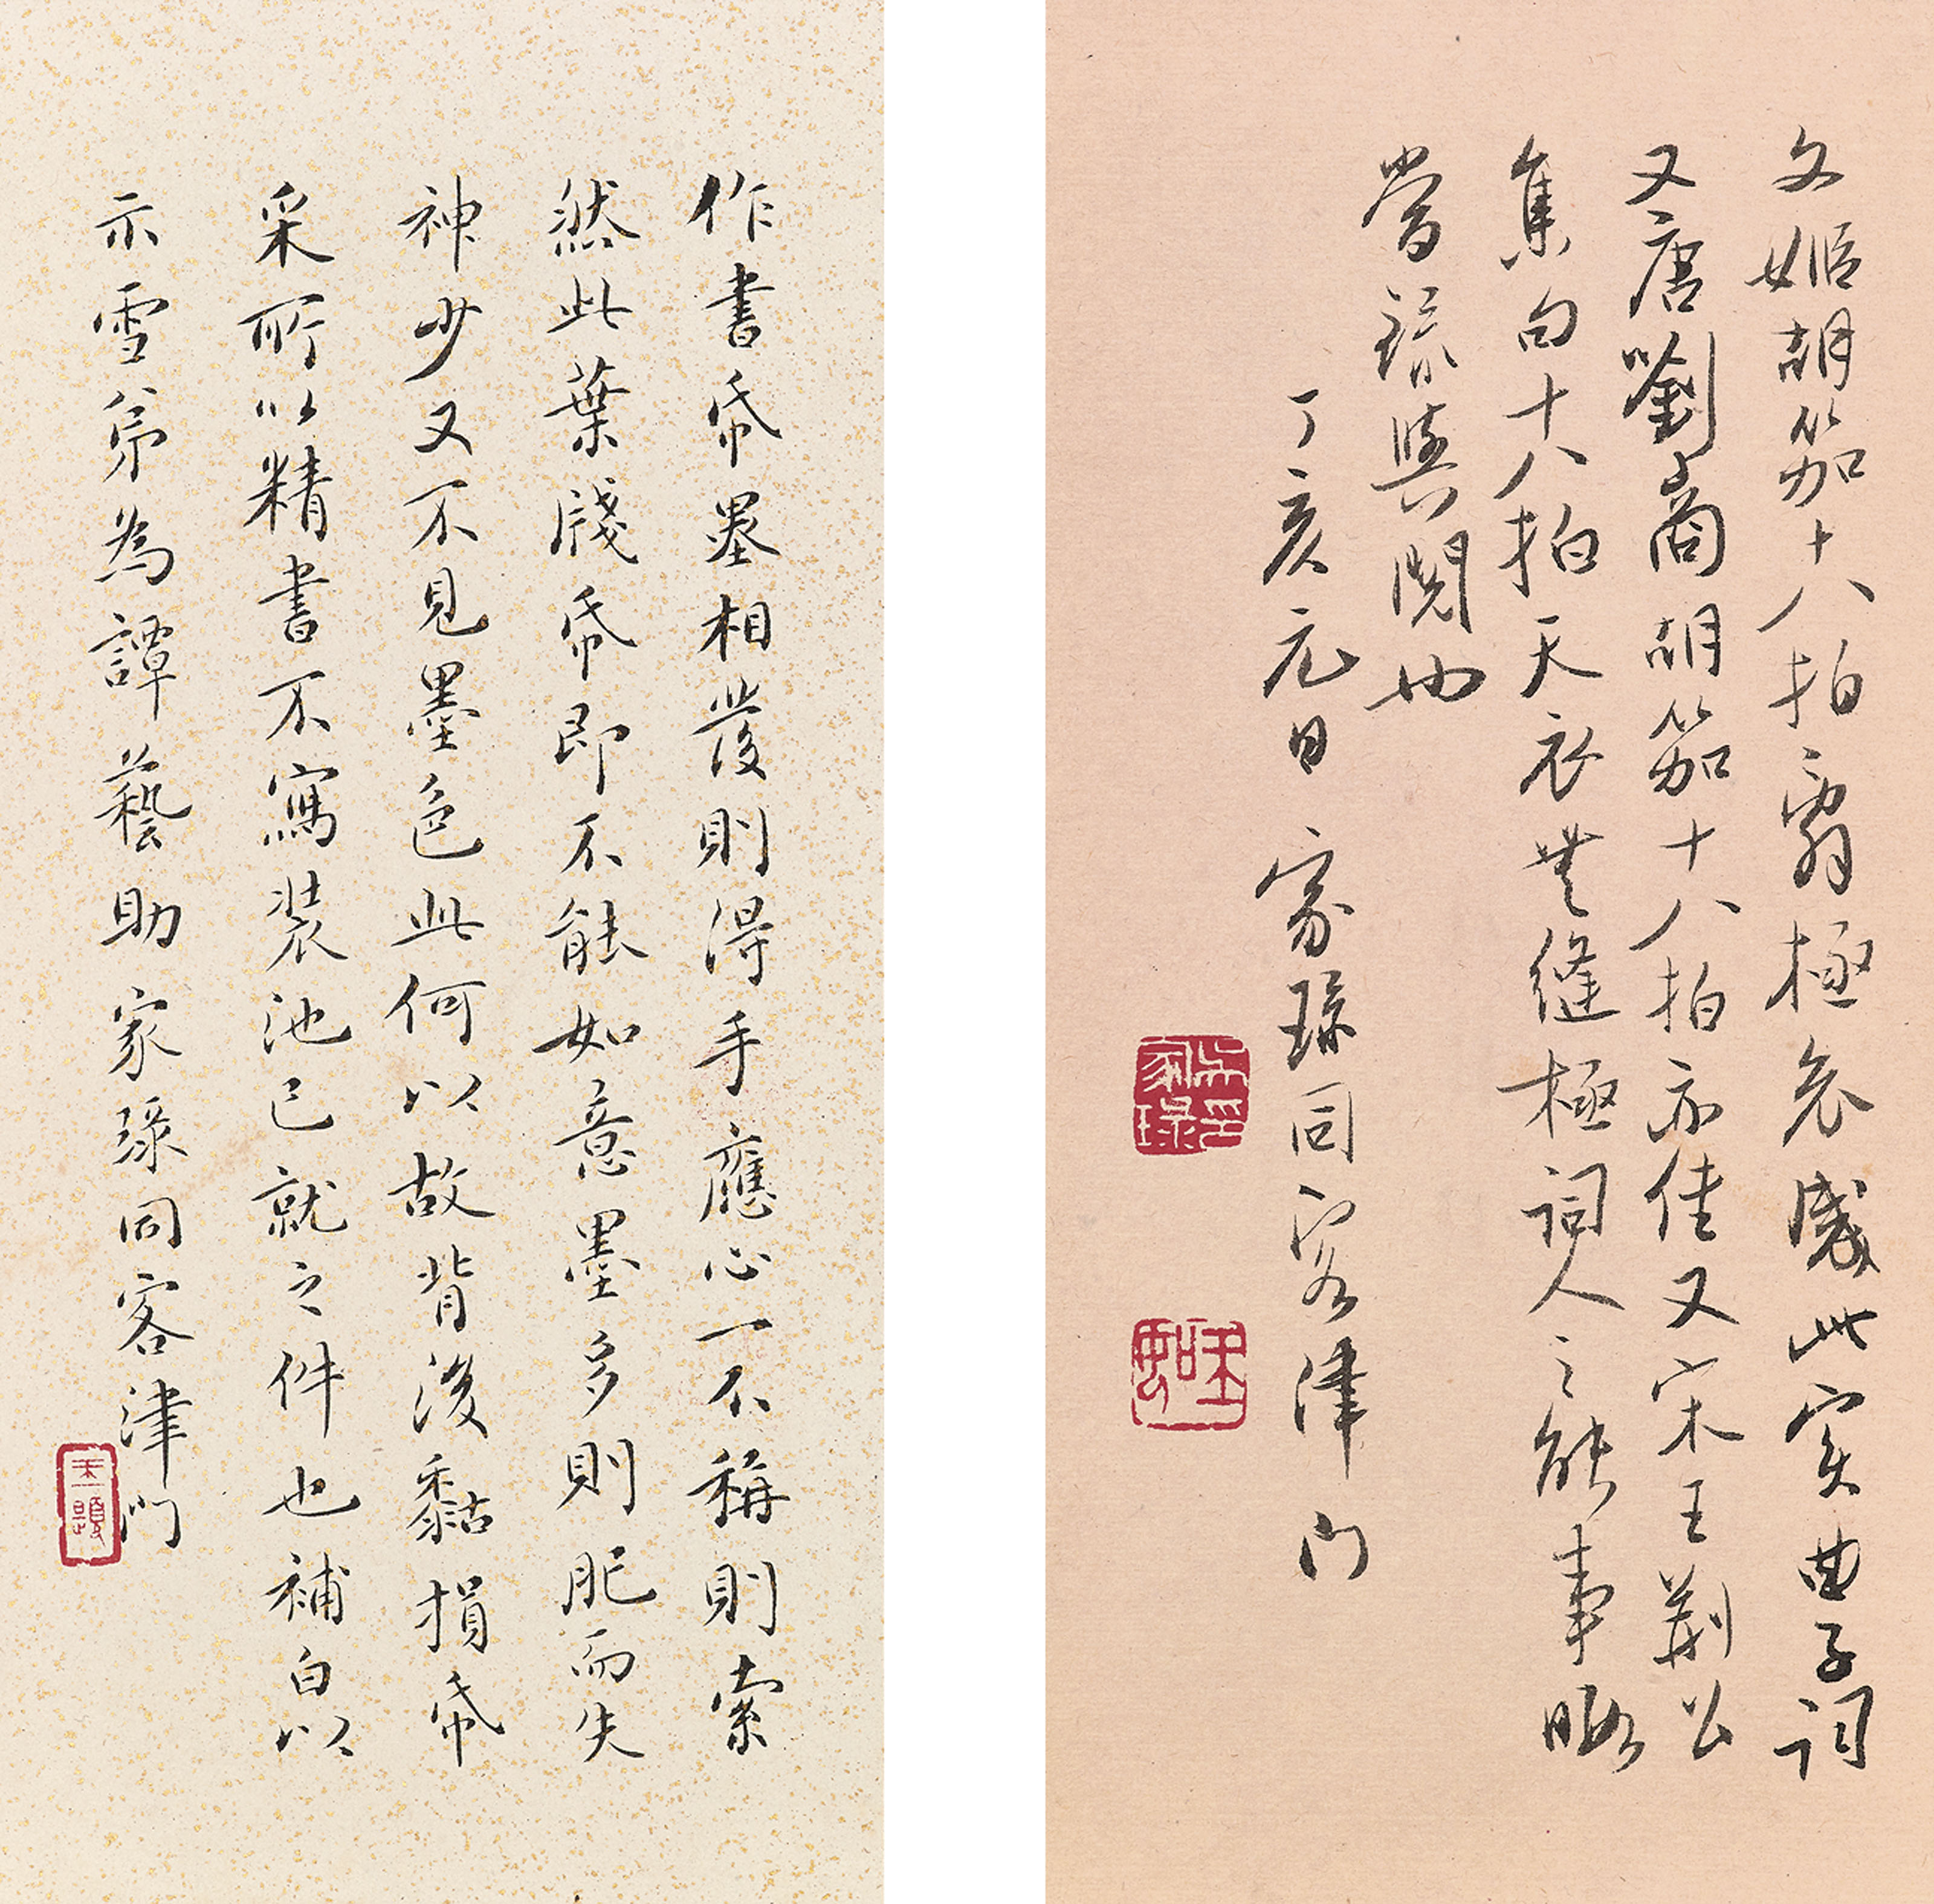 文姬胡笳十八拍窮極哀感此實曲子詞
又唐劉商胡笳十八拍亦佳又宋王荊公
集句十八拍天衣無縫極詞人之能事暇
當琭與閱也
丁亥元日 家琭同客津門
作書帋墨相發則得手應心一不稱則索
然此葉牋帋即不能如意墨多則肥而失
神少又不見墨色此何以故背後黏損帋
采所以精書不寫裝池已就之件也補白以
示雪弟為譚藝助家琭同客津門